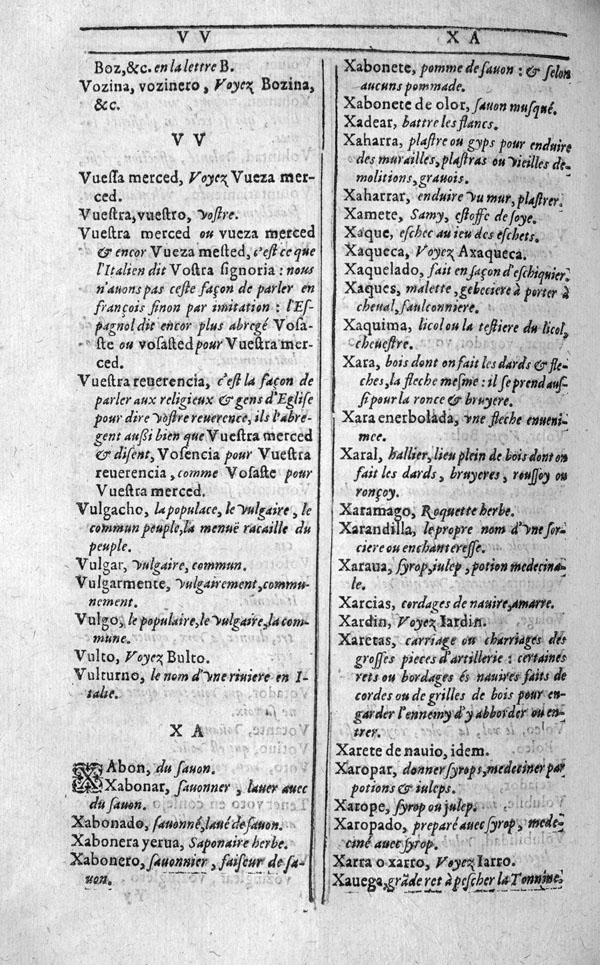 V V
Boz,&c. en la lettre B.
Vozina, vozinero, Voyez Bozina,
&c.
V V
Vuessa merced, Voyez Vueza mer-
ced.
Vuestra, vuestro, vostre.
Vuestra merced ou vueza merced
& encor Vueza mested, c'est ce que
l'Italien dit Vostra signoria : nous
n'auons pas ceste façon de parler en
françois sinon par imitation : l'Es-
pagnol dit encor plus abregé Vosa-
ste ou vosasted pour Vuestra mer-
ced.
Vuestra reuerencia, c'est la façon de
parler aux religieux & gens d'Eglise
pour dire vostre reuerence, ils l'abre-
gent aussi bien que Vuestra merced
& disent, Vosencia pour Vuestra
reuerencia, comme Vosaste pour
Vuestra merced.
Vulgacho, la populace, le vulgaire, le
commun peuple, la menuë racaille du
peuple.
Vulgar, vulgaire, commun.
Vulgarmente, vulgairement, commu-
nement.
Vulgo, le populaire, le vulgaire, la com-
mune.
Vulto, Voyez Bulto.
Vulturno, le nom d'vne riuiere en I-
talie.
X A
XAbon, du sauon.
Xabonar, sauonner, lauer auec
du sauon.
Xabonado, sauonné, laué de sauon.
Xabonera yerua, Saponaire herbe.
Xabonero, sauonnier, faiseur de sa-
uon.
X A
Xabonete, pomme de sauon : & selon
aucuns pommade.
Xabonete de olor, sauon musqué.
Xadear, battre les flancs.
Xaharra, plastre ou gyps pour enduire
des murailles, plastras ou vieilles de-
molitions, grauois.
Xaharrar, enduire vu mur, plastrer.
Xamete, Samy, estoffe de soye.
Xaque, eschec au ieu des eschets.
Xaqueca, Voyez Axaqueca.
Xaquelado, fait en façon d'eschiquier.
Xaques, malette, gebeciere à porter à
cheual, faulconniere.
Xaquima, licol ou la testiere du licol,
cheuestre.
Xara, bois dont on fait les dards & fle-
ches, la fleche mesme : il se prend aus-
si pour la ronce & bruyere.
Xara enerbolada, vne fleche enueni-
mee.
Xaral, hallier, lieu plein de bois dont on
fait les dards, bruyeres, roussoy ou
ronçoy.
Xaramago, Roquette herbe.
Xarandilla, le propre nom d'vne sor-
ciere ou enchanteresse.
Xaraua, syrop, iulep, potion medecina-
le.
Xarcias, cordages de nauire, amarre.
Xardin, Voyez Iardin.
Xaretas, carriage ou charriages des
grosses pieces d'artillerie : certaines
rets ou bordages és nauires faits de
cordes ou de grilles de bois pour en-
garder l'ennemy d'y abborder ou en-
trer.
Xarete de nauio, idem.
Xaropar, donner syrops, medeciner par
potions & iuleps.
Xarope, syrop ou julep.
Xaropado, preparé auec syrop, mede-
ciné auec syrop.
Xarra o xarro, Voyez Iarro.
Xauega, grãde ret à pescher la Tonnine.